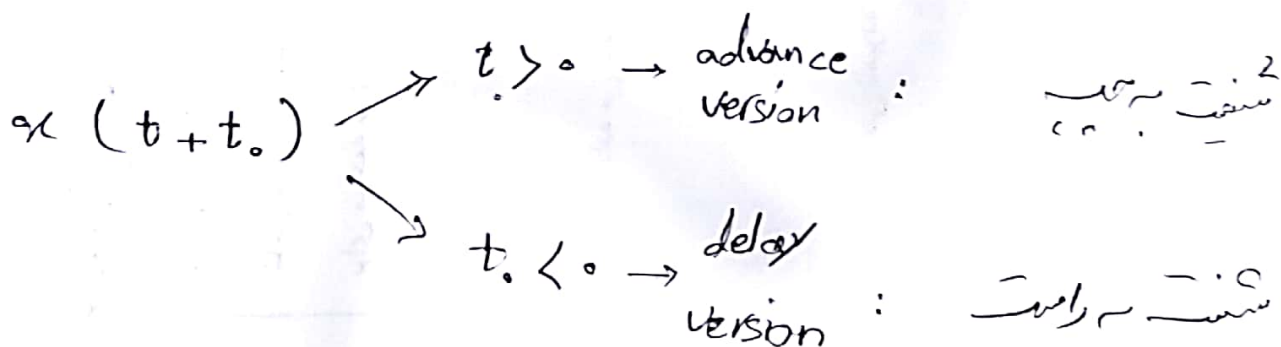 x(t + t₀)
t₀ > 0 → advance version : شیفت به چپ
t₀ < 0 → delay version : شیفت به راست